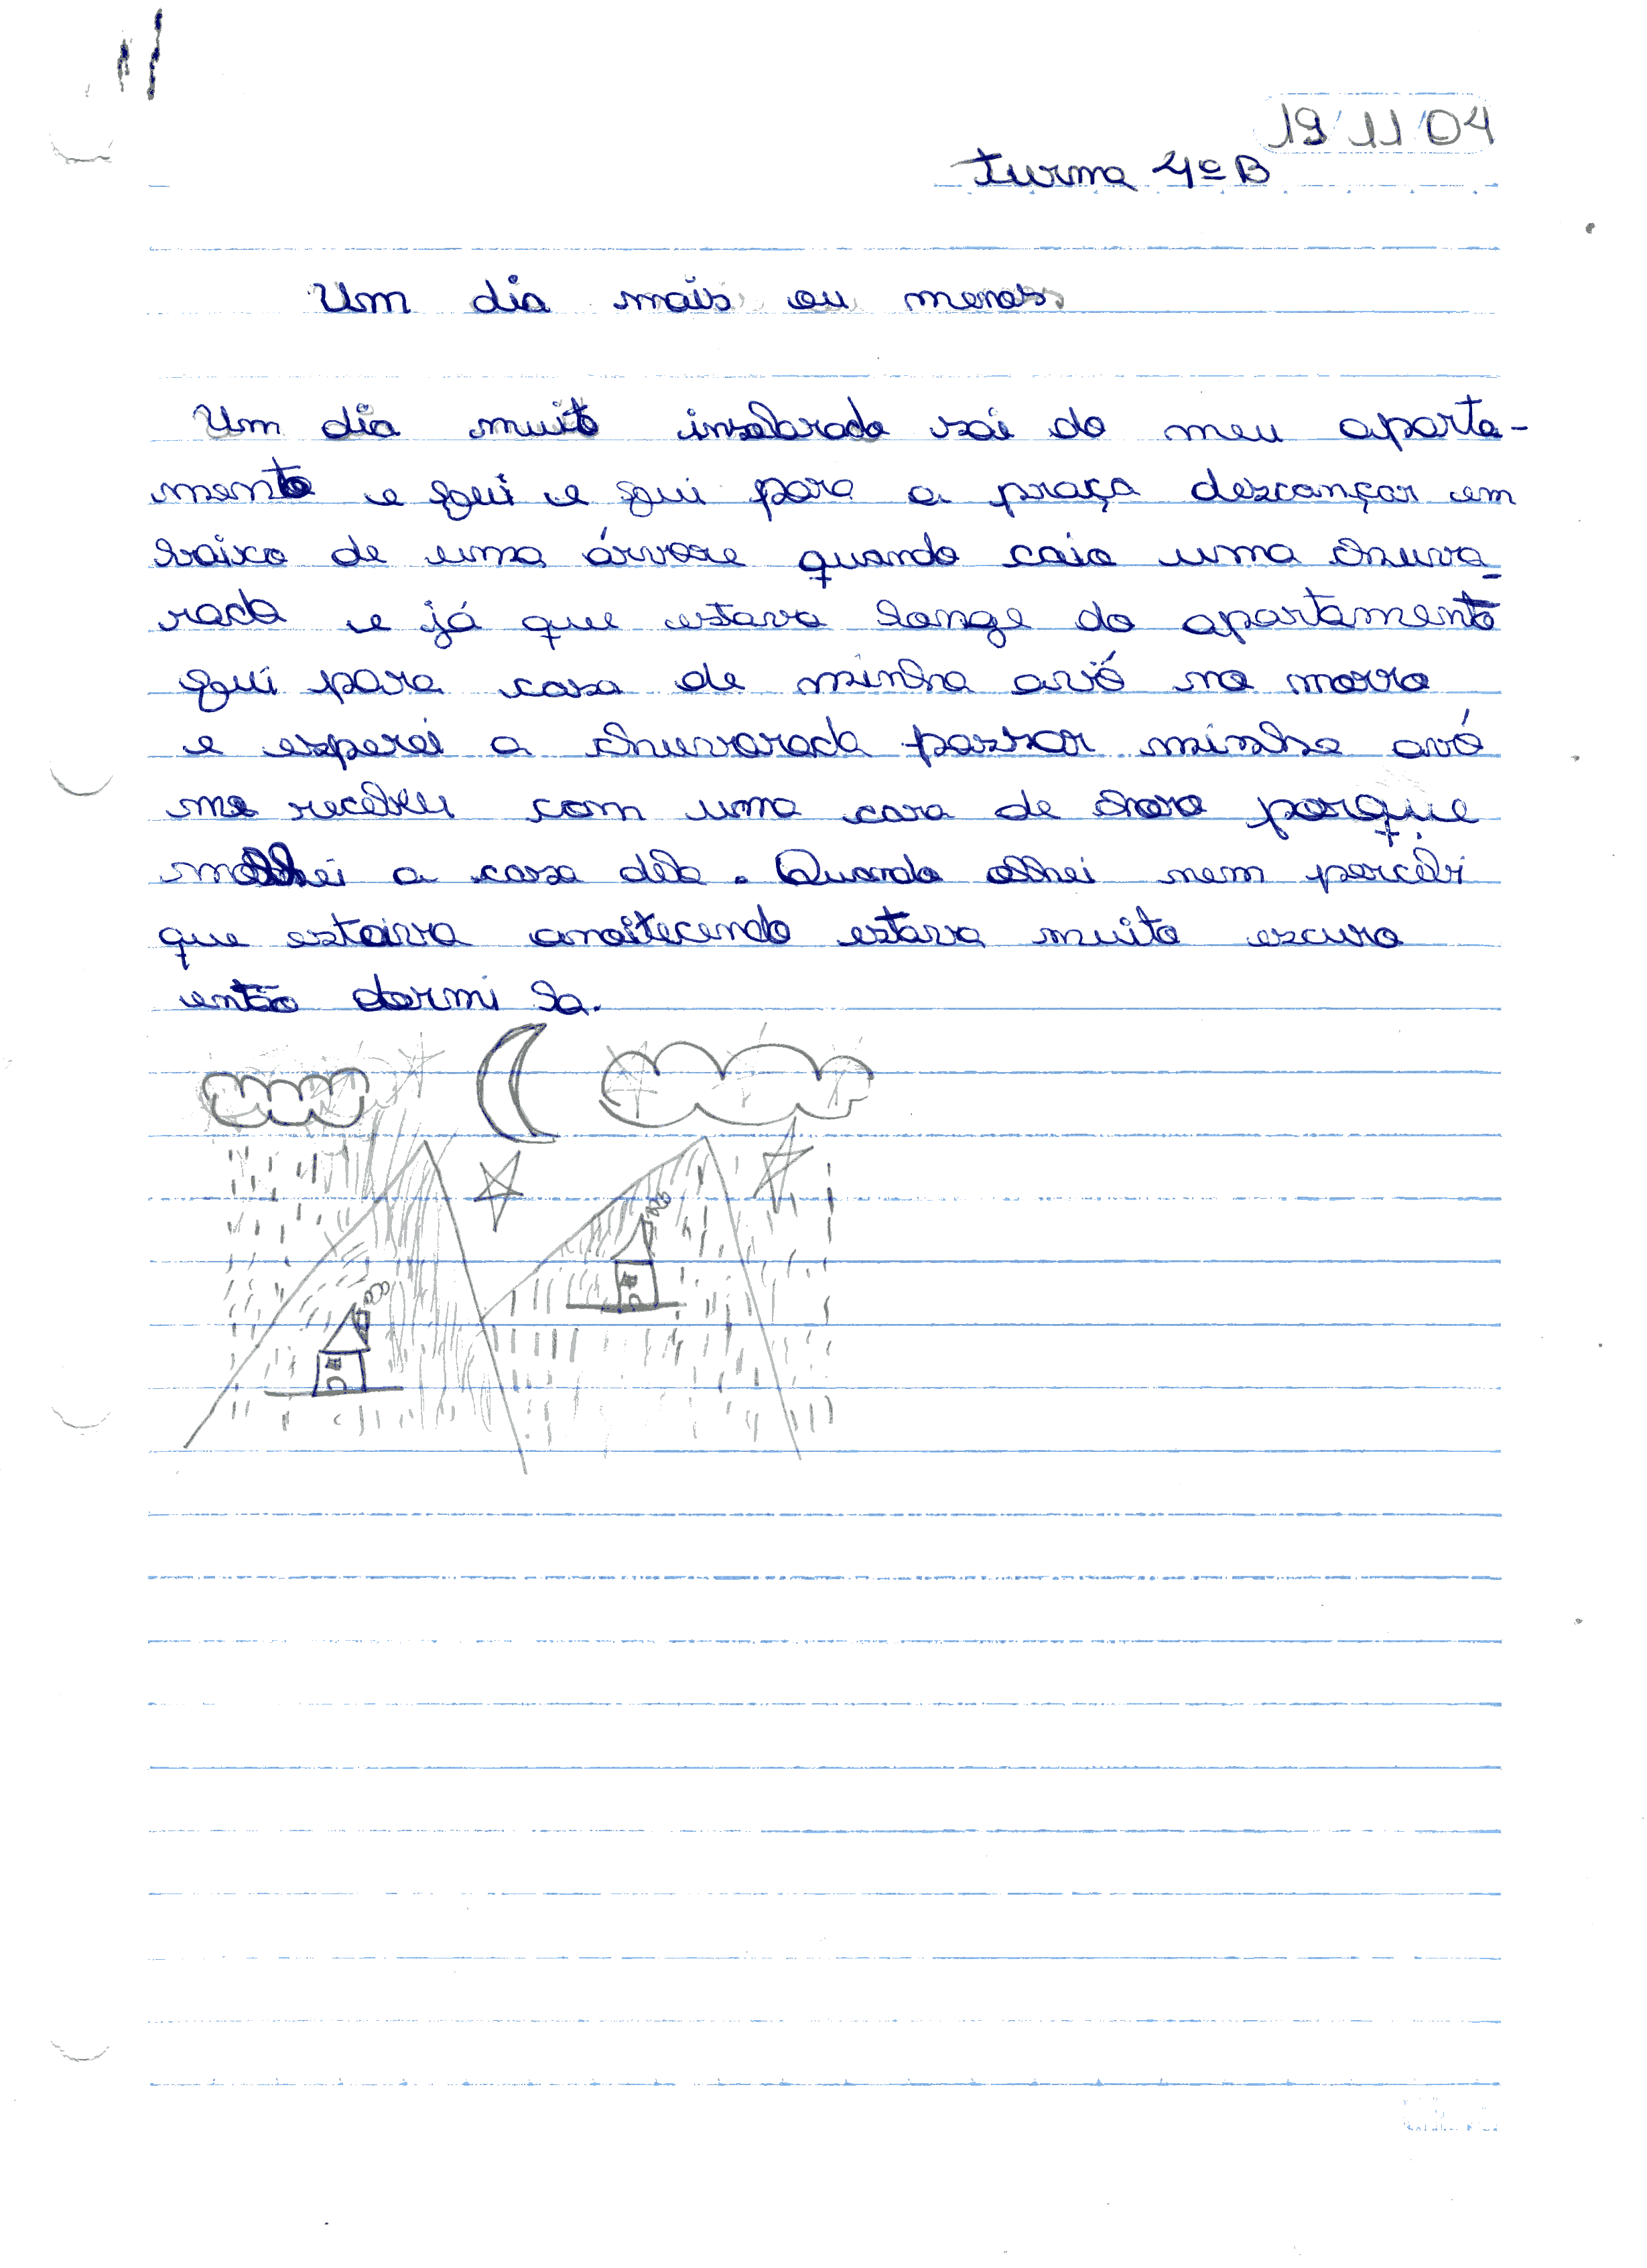 19 11 04
turma 4ª B
Um dia mais ou menos
Um dia muito insolarado sai do meu aparta-
mento e fui e fui para a praça descançar em
baixo de uma árvore quando caio uma chuva-
rada e já que estava longe do apartamento
fui para casa de minha avó no morro
e esperei a chuvarada passar minha avó
me recebeu com uma cara de choro porque
molhei a casa dela. Quando olhei nem percebi
que estava anoitecendo estava muito escuro
então dormi la.